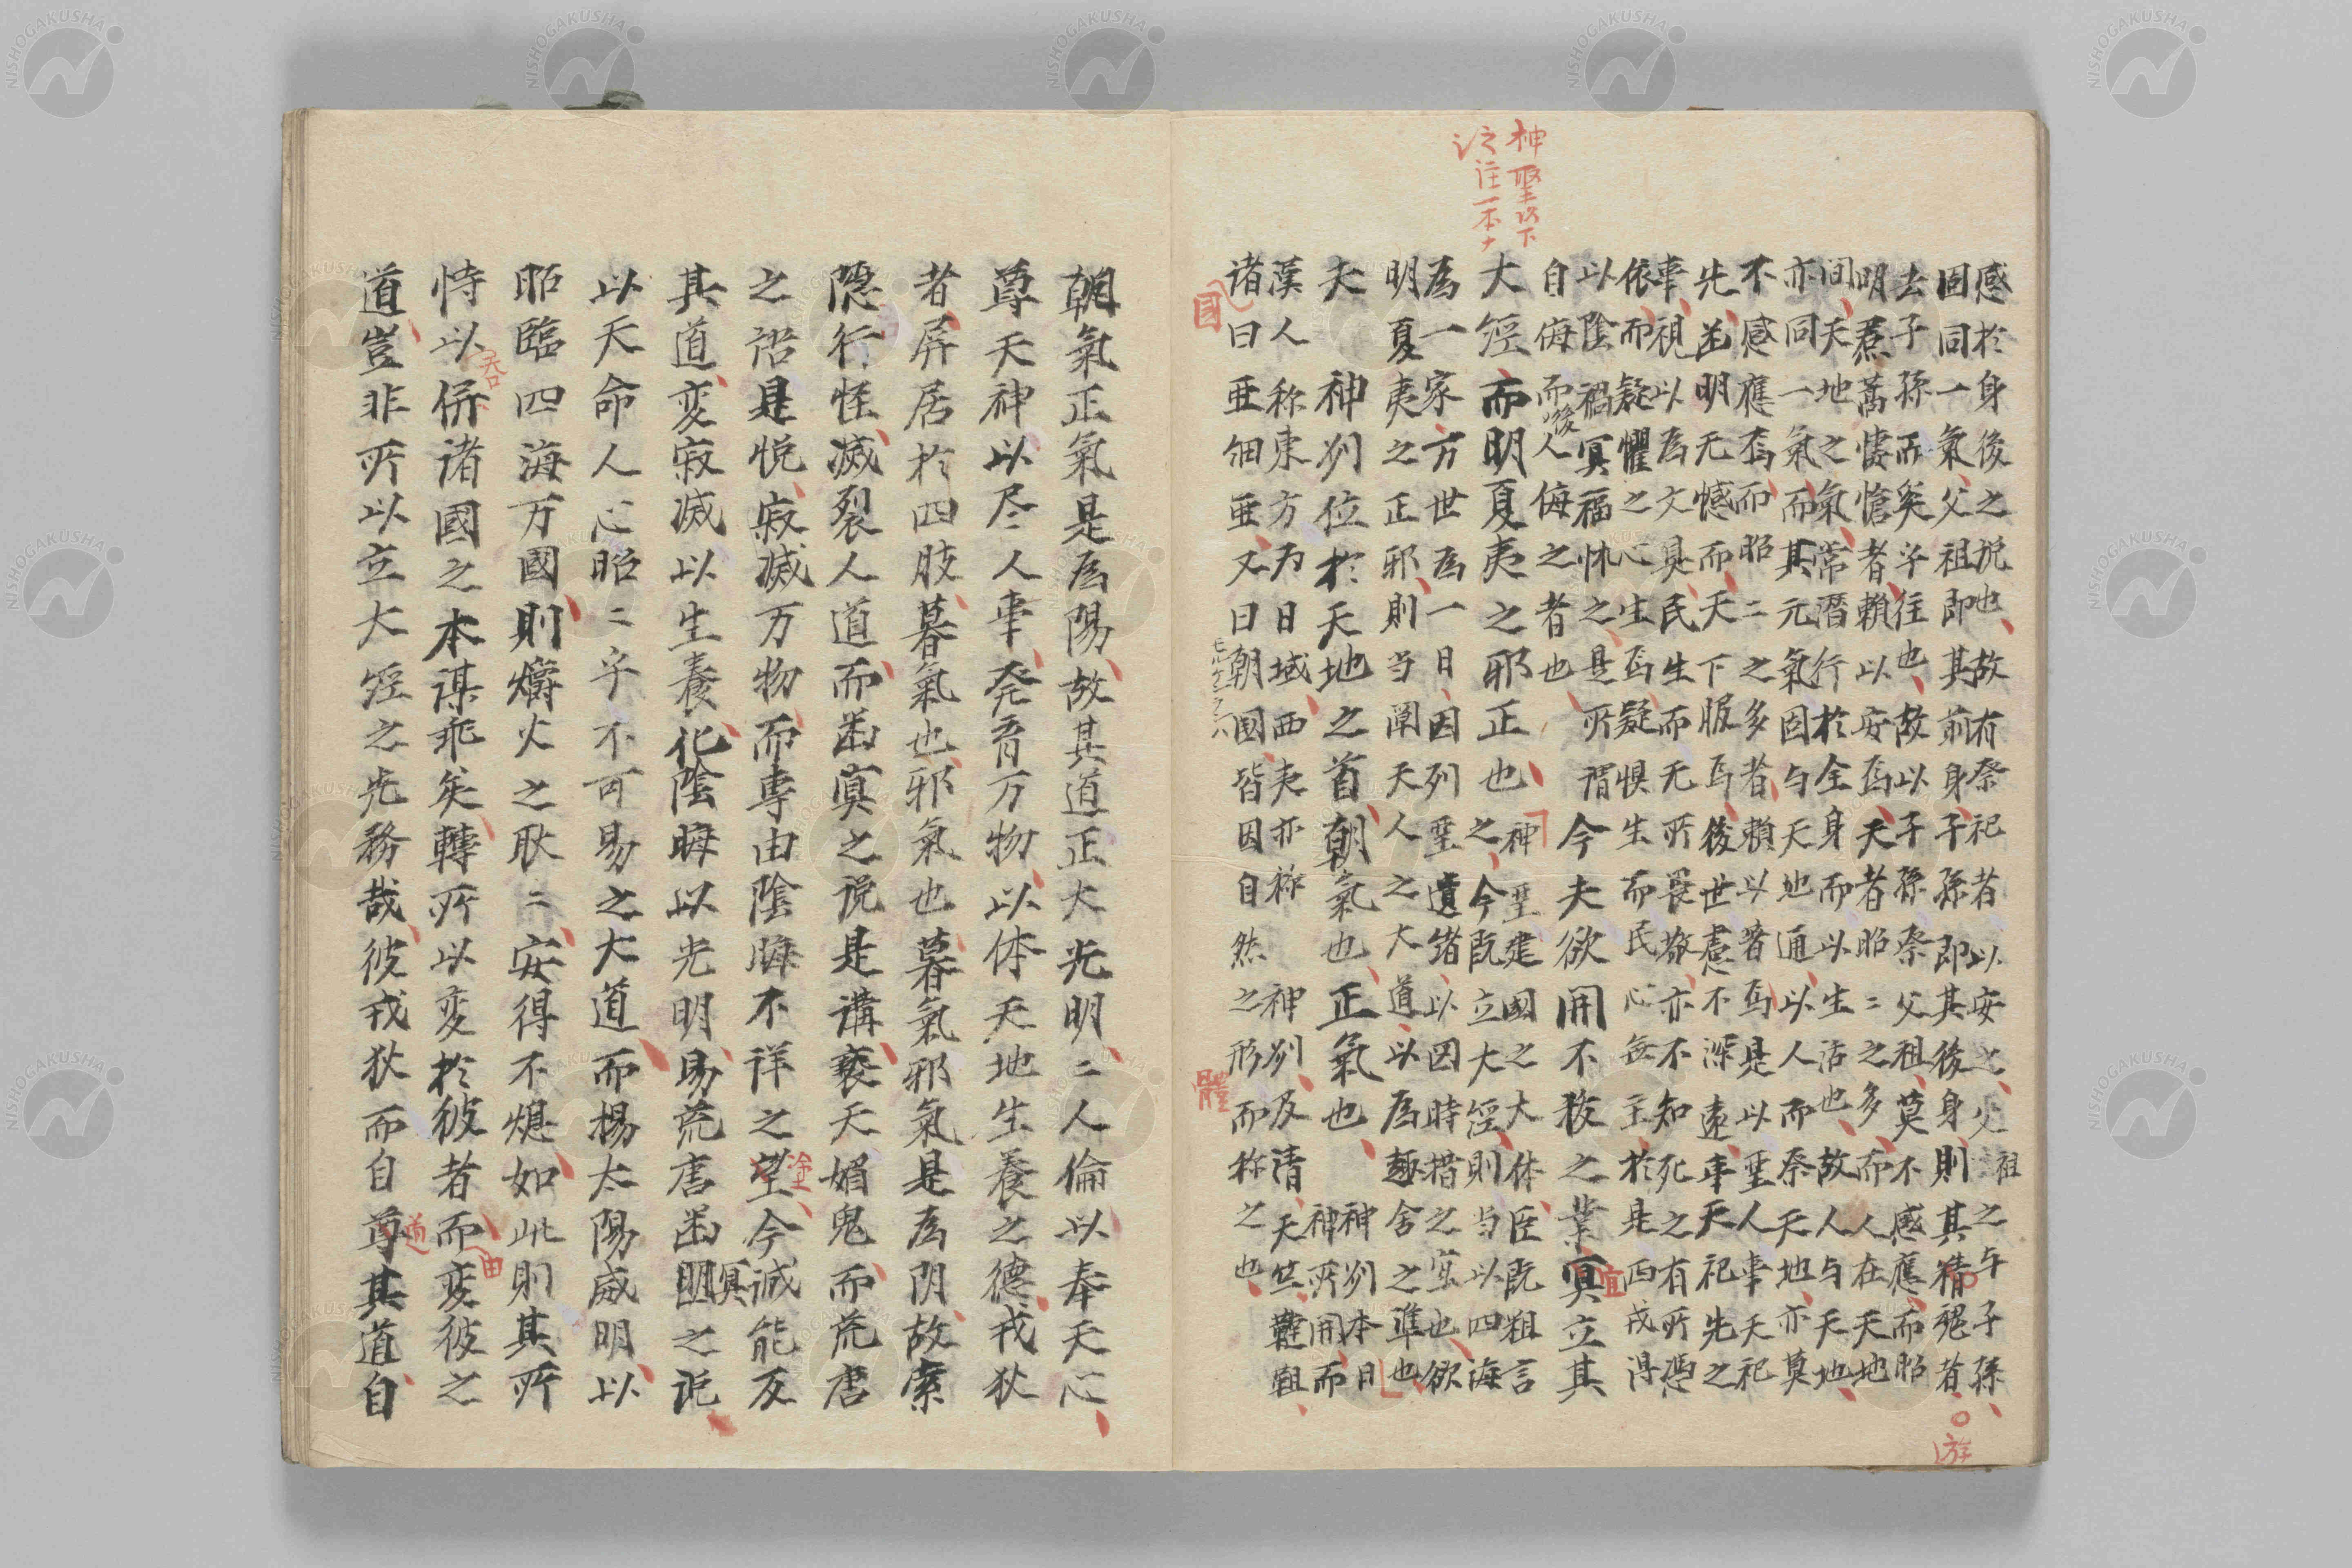 神聖以下
注一本ナ
感於身後之説也故有祭祀者以安之父祖之与子孫
固同一氣父祖即其前身子孫即其後身則其精魂者
游
去子孫而矣乎往也故以子子孫祭父祖莫不感應而昭
明焄蒿悽愴者賴以安焉天者昭〻之多而人在天地
間天地之氣常潛行於全身而以生活也故人与天地
亦同一氣而其元氣固与天地通以人而祭天地亦莫
不感應焉而昭〻之多者賴以著焉是以聖人事天祀
先幽明无憾而天下服焉後世慮不深遠事天祀先之
事視以為文具民生而无所畏敬亦不知死之有所憑
依而疑懼之心生焉疑惧生而民心無主於是西戎得
以陰禍冥福怵之是所謂
自侮而後人侮之者也
今夫欲開不拔之業冥立其
宜
大經而明夏夷之邪正也
神聖建國之大体臣既粗言
之今既立大經則当以四海
為一家万世為一日因列聖遺緒以因時措之宜也欲
明夏夷之正邪則当闡天人之大道以為趣舍之準也
夫神州位於天地之首朝氣也正氣也
神州本日
神所開而
漢人称東方为日域西夷亦称神州及清天竺韃靼
諸曰亜細亜又曰朝國皆因自然之形而称之也
國
體
朝氣正氣是為陽故其道正大光明〻人倫以奉天心
尊天神以尽人事発育万物以体天地生養之德戎狄
者屏居於四肢暮氣也邪氣也暮氣邪氣是為阴故索
隠行怪滅裂人道而幽冥之説是講褻天媚鬼而荒唐
之語是悦寂滅万物而専由陰晦不祥之望今誠能反
塗
其道変寂滅以生養化陰晦以光明易荒唐幽明之説
冥
以天命人心昭〻乎不可易之大道而楊太陽威明以
昭臨四海万國則爝火之耿〻安得不熄如此則其所
恃以併諸國之本謀乖矣轉所以変於彼者而変彼之
呑
由
道豈非所以立大經之先務哉彼戎狄而自尊其道自
道